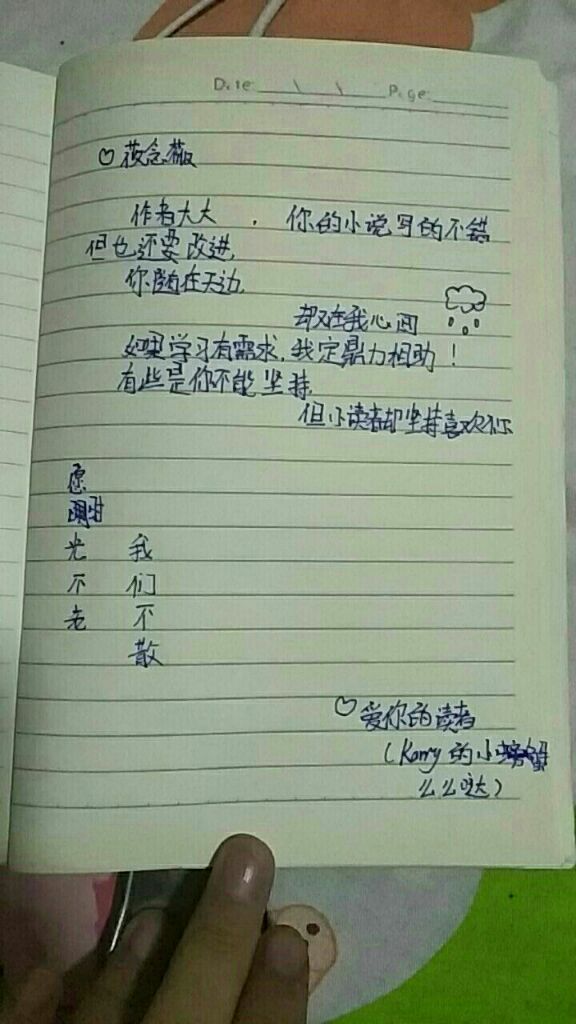 Date: \ \ Page:
♡ 筱念薇
作者大大 . 你的小说写的不错
但也还要改进,
你随在天边,
却又在我心间
如果学习有需求,我定鼎力相助!
有些是你不能坚持,
但小读者却坚持喜欢你
愿
时
光 我
不 们
老 不
散
♡ 爱你的读者
(Karry的小螃蟹
么么哒)